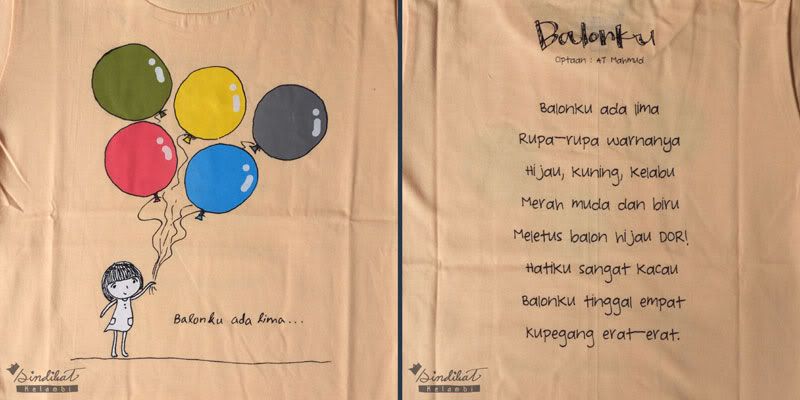 Balonku ada lima...
Sindikat
Kelambi
Balonku
Ciptaan : AT Mahmud
Balonku ada lima
Rupa-rupa warnanya
Hijau, kuning, kelabu
Merah muda dan biru
Meletus balon hijau DOR!
Hatiku sangat kacau
Balonku tinggal empat
Kupegang erat-erat.
Sindikat
Kelambi